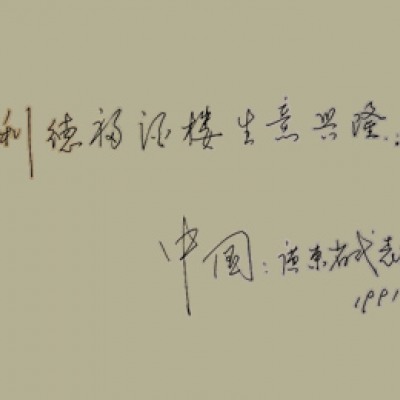 利德福酒楼生意兴隆
中国:广东省代表
1991